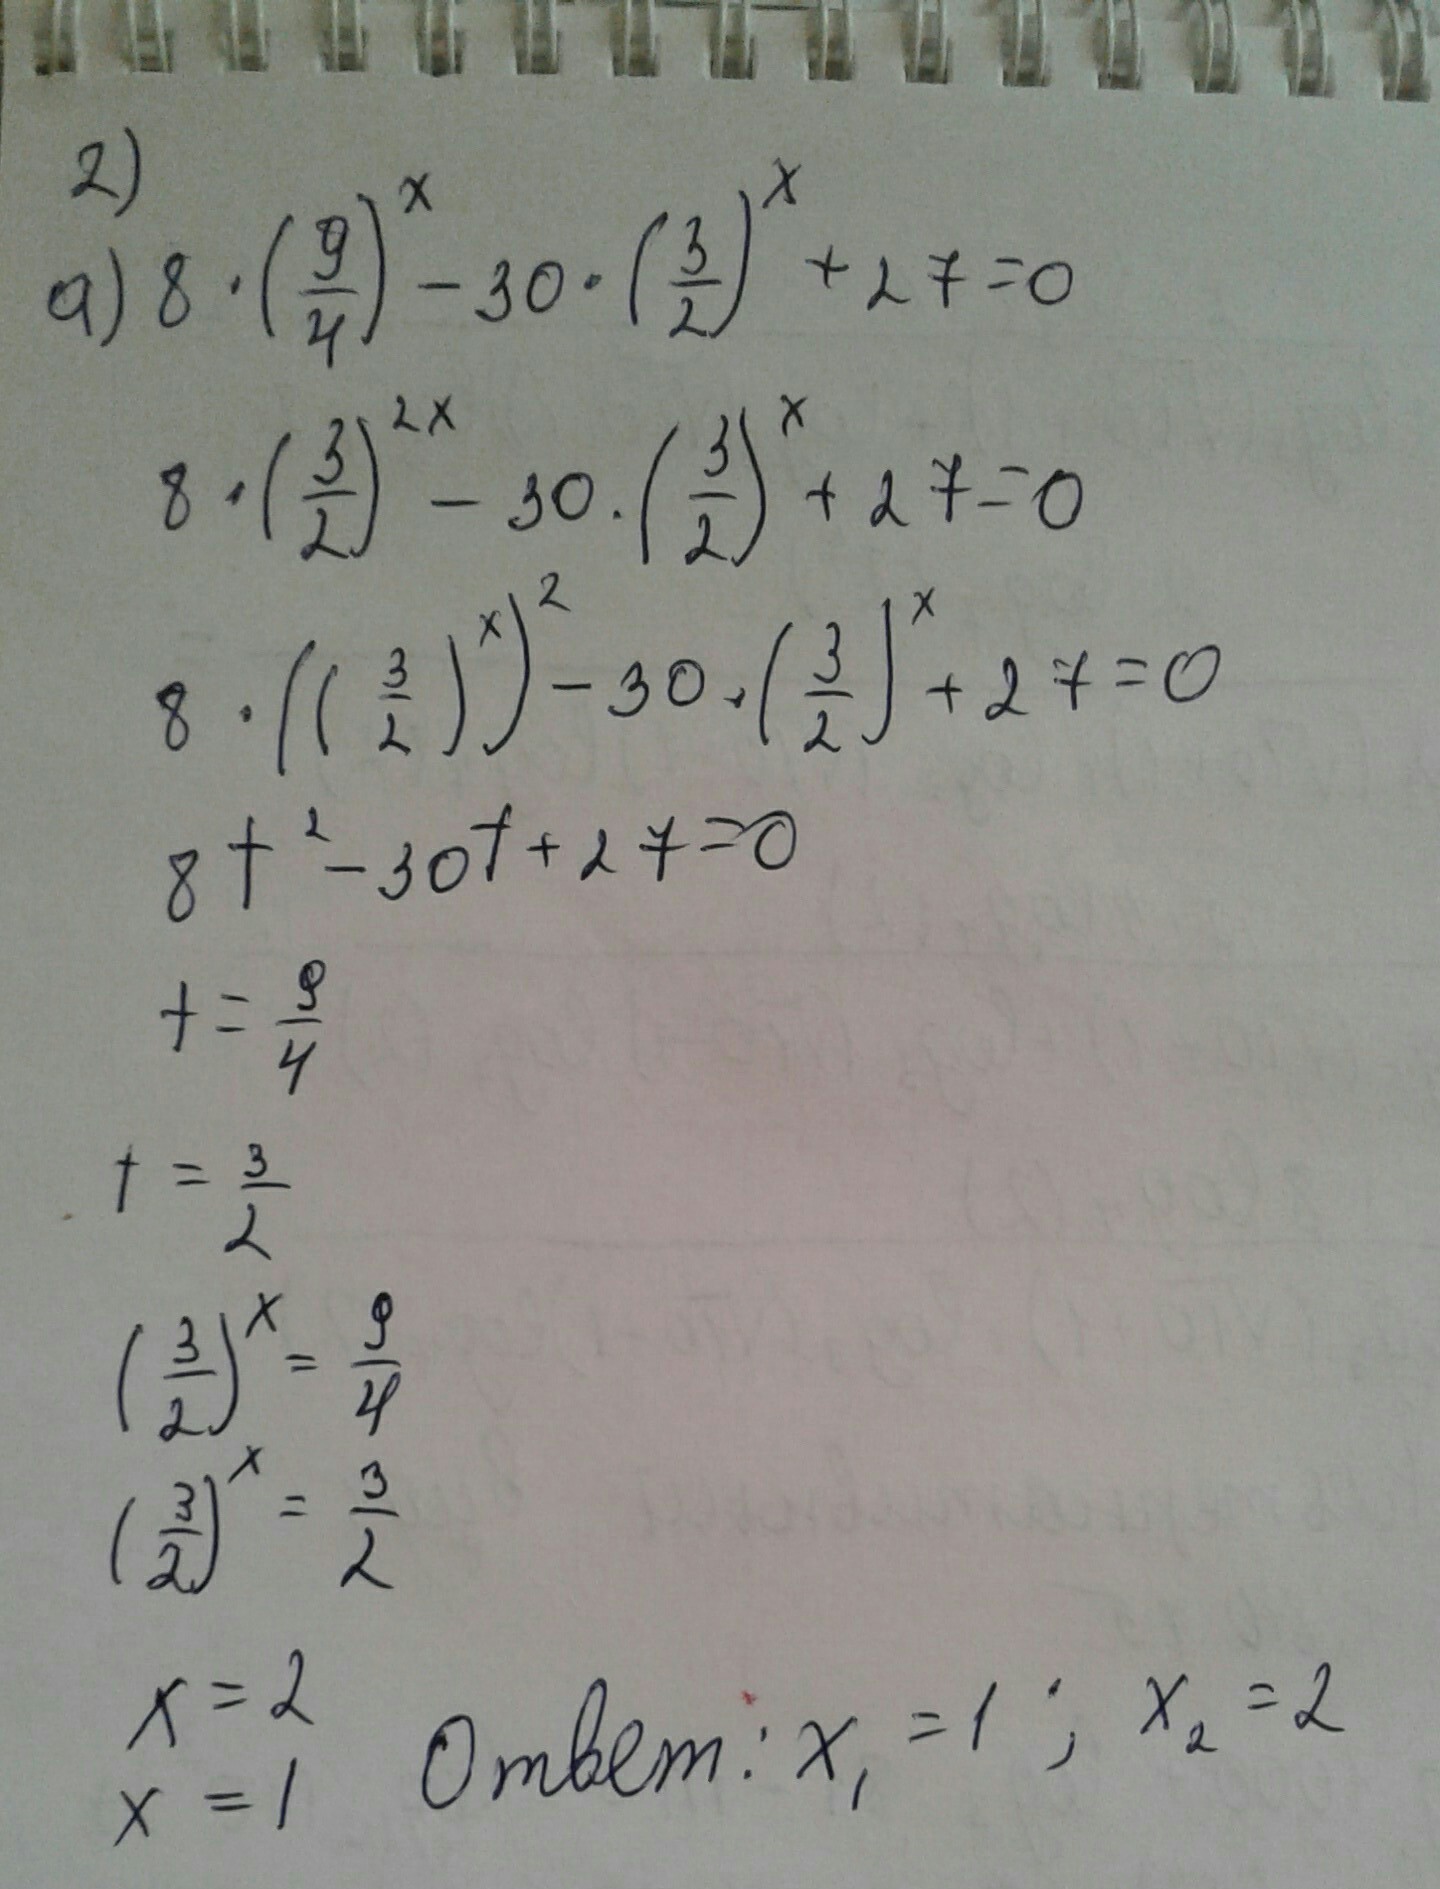 2)
а) 8 · (9/4)^x − 30 · (3/2)^x + 27 = 0
8 · (3/2)^2x − 30 · (3/2)^x + 27 = 0
8 · ((3/2)^x)^2 − 30 · (3/2)^x + 27 = 0
8t^2 − 30t + 27 = 0
t = 9/4
t = 3/2
(3/2)^x = 9/4
(3/2)^x = 3/2
x = 2
x = 1
Ответ: x₁ = 1 ; x₂ = 2